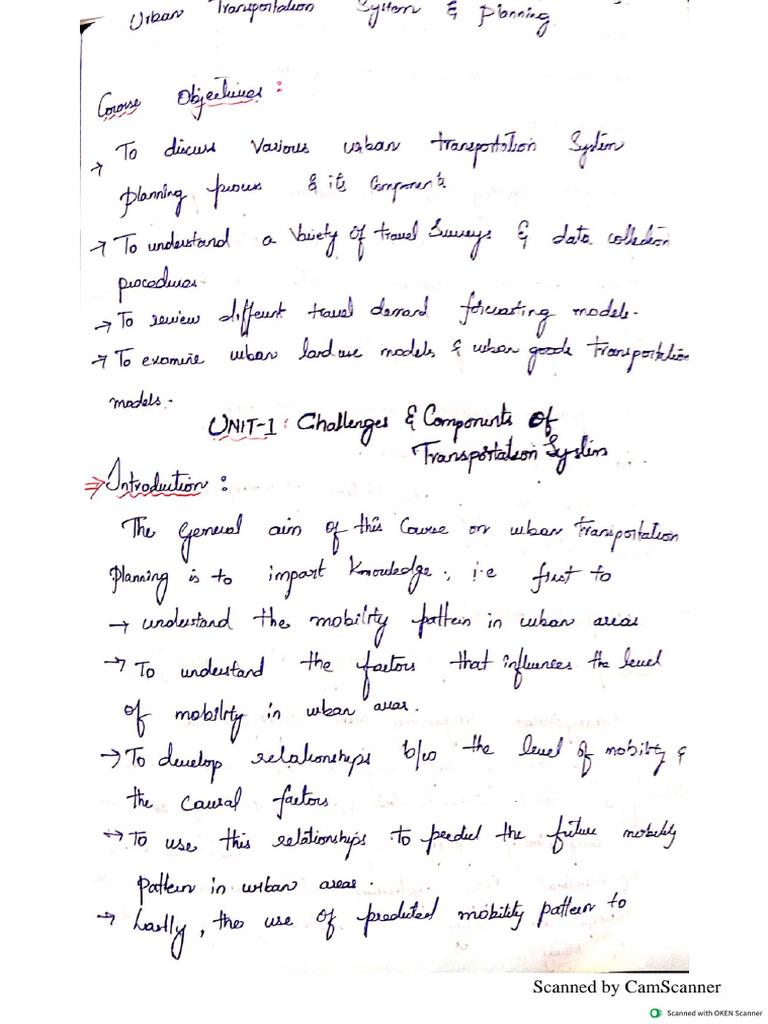 Urban Transportation System & Planning
Course Objectives :
→ To discuss Various urban transportation System
planning process & its Components
→ To understand a Variety of travel Surveys & data collection
procedures.
→ To review different travel demand forecasting models.
→ To examine urban land use models & urban goods Transportation
models.
UNIT-1 : Challenges & Components of
Transportation System
⇒ Introduction :
The general aim of this Course on urban transportation
planning is to impart Knowledge, i.e first to
→ understand the mobility pattern in urban areas
→ To understand the factors that influences the level
of mobility in urban areas.
→ To develop relationships b/w the level of mobility &
the causal factors.
→ To use this relationships to predict the future mobility
pattern in urban areas.
→ Lastly, the use of predicted mobility pattern to
Scanned by CamScanner
Scanned with OKEN Scanner